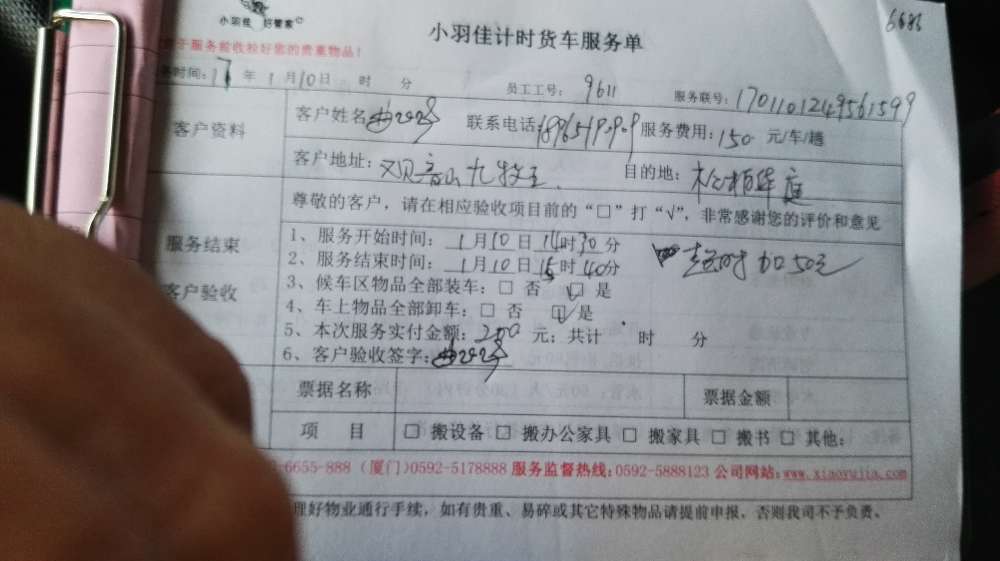 6686
小羽佳 好管家
小羽佳计时货车服务单
于服务验收检好您的贵重物品!
务时间: 17 年 1 月 10 日 时 分 员工工号: 9611 服务联号: 1701101249561599
客户资料
客户姓名 联系电话: 服务费用: 150 元/车/趟
客户地址: 观音山九牧王 目的地: 松柏华庭
尊敬的客户, 请在相应验收项目前的“□”打“√”, 非常感谢您的评价和意见
服务结束
客户验收
1、服务开始时间: 1 月 10 日 14 时 30 分 超时加50元
2、服务结束时间: 1 月 10 日 15 时 40 分
3、候车区物品全部装车: □ 否 ☑ 是
4、车上物品全部卸车: □ 否 ☑ 是
5、本次服务实付金额: 200 元; 共计 时 分
6、客户验收签字:
票据名称 票据金额
项 目 □ 搬设备 □ 搬办公家具 □ 搬家具 □ 搬书 □ 其他:
-6655-888 (厦门)0592-5178888 服务监督热线: 0592-5888123 公司网站: www.xiaoyujia.com
理好物业通行手续, 如有贵重、易碎或其它特殊物品请提前申报, 否则我司不予负责。